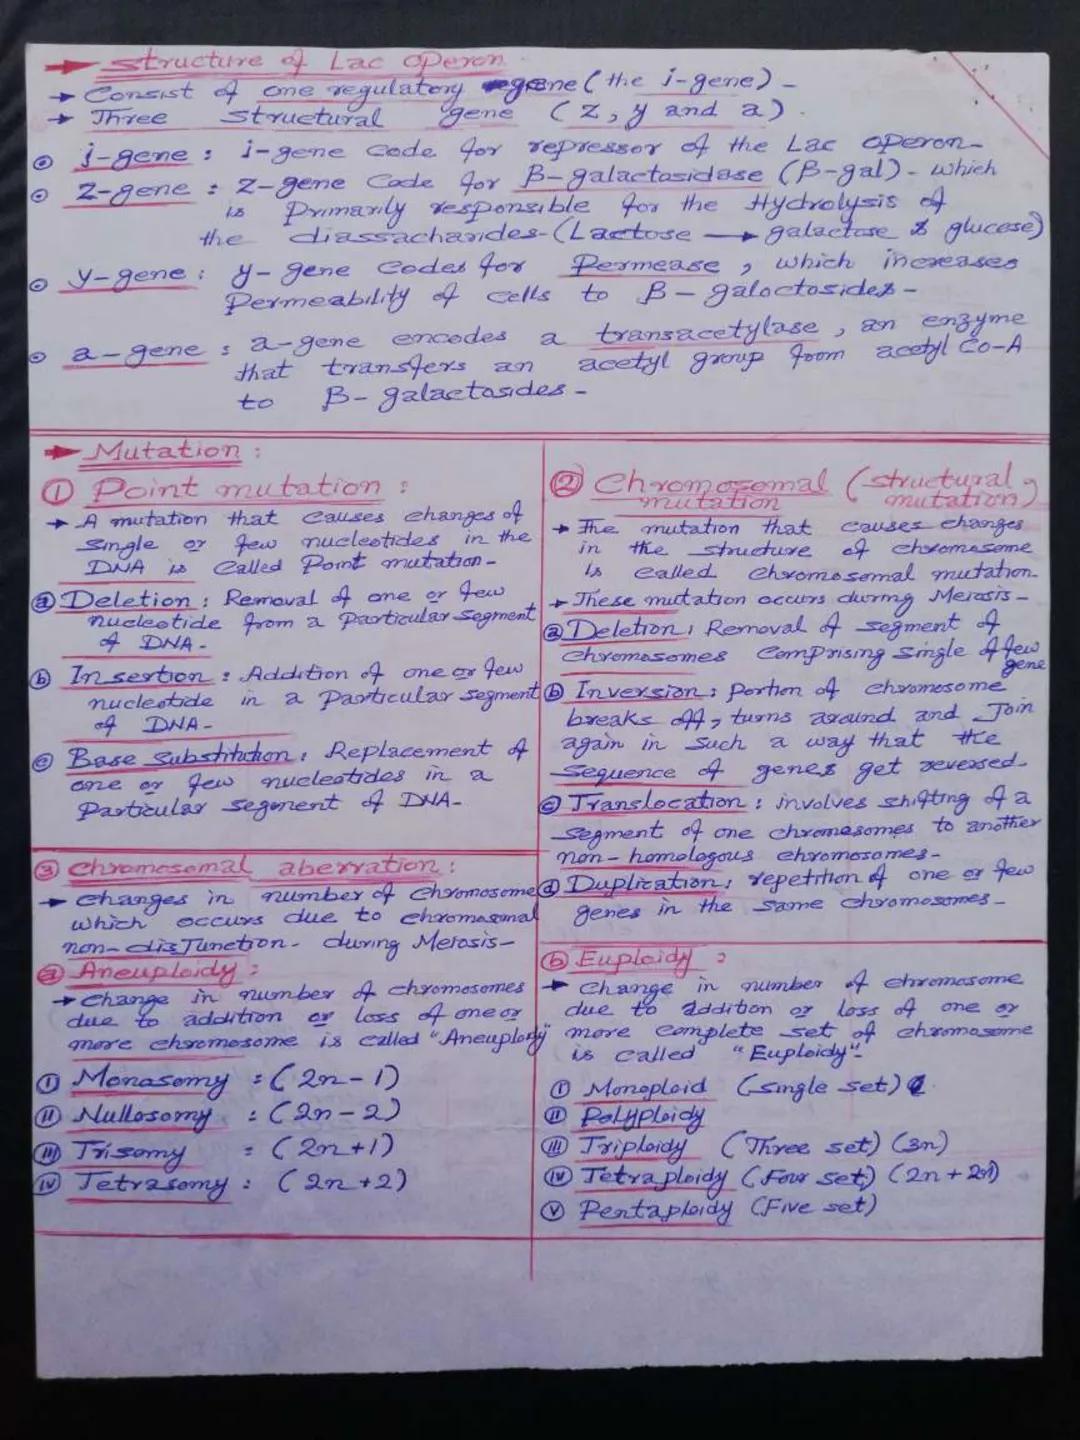 Structure of Lac operon
→ Consist of one regulatory gene (the i-gene) -
→ Three structural gene (z, y and a).
i-gene : i-gene code for repressor of the Lac operon-
z-gene : z-gene code for B-galactosidase (B-gal)- which
is Primarily responsible for the Hydrolysis of
the diassacharides-(Lactose → galactose & glucose)
y-gene : y-gene codes for Permease, which increases
Permeability of cells to B-galoctosides-
a-gene : a-gene encodes a transacetylase, an enzyme
that transfers an acetyl group from acetyl Co-A
to B-galactosides-
→ Mutation :
① Point mutation :
→ A mutation that causes changes of
single or few nucleotides in the
DNA is called Point mutation-
ⓐ Deletion : Removal of one or few
nucleotide from a Particular segment
of DNA-
ⓑ Insertion : Addition of one or few
nucleotide in a Particular segment
of DNA-
ⓒ Base substitution : Replacement of
one or few nucleotides in a
Particular segment of DNA-
② Chromosomal (structural
mutation mutation)
→ The mutation that causes changes
in the structure of chromosome
is called chromosomal mutation-
→ These mutation occurs during Meiosis-
ⓐ Deletion : Removal of segment of
chromosomes comprising single of few
gene
ⓑ Inversion : portion of chromosome
breaks off, turns around and Join
again in such a way that the
sequence of genes get reversed-
ⓒ Translocation : involves shifting of a
segment of one chromosomes to another
non-homologous chromosomes-
ⓓ Duplication : repetition of one or few
genes in the same chromosomes-
③ chromosomal aberration :
→ changes in number of chromosome
which occurs due to chromosomal
non-disJunction- during Meiosis-
ⓐ Aneuploidy :
→ change in number of chromosomes
due to addition or loss of one or
more chromosome is called "Aneuploidy"
① Monosomy : (2n-1)
⑪ Nullosomy : (2n-2)
⑪ Trisomy : (2n+1)
ⓘⓥ Tetrasomy : (2n+2)
ⓑ Euploidy :
→ change in number of chromosome
due to addition or loss of one or
more complete set of chromosome
is called "Euploidy"-
ⓘ Monoploid (single set)
ⓘⓘ Polyploidy
ⓘⓘⓘ Triploidy (Three set) (3n)
ⓘⓥ Tetraploidy (Four set) (2n+2n)
ⓥ Pentaploidy (Five set)